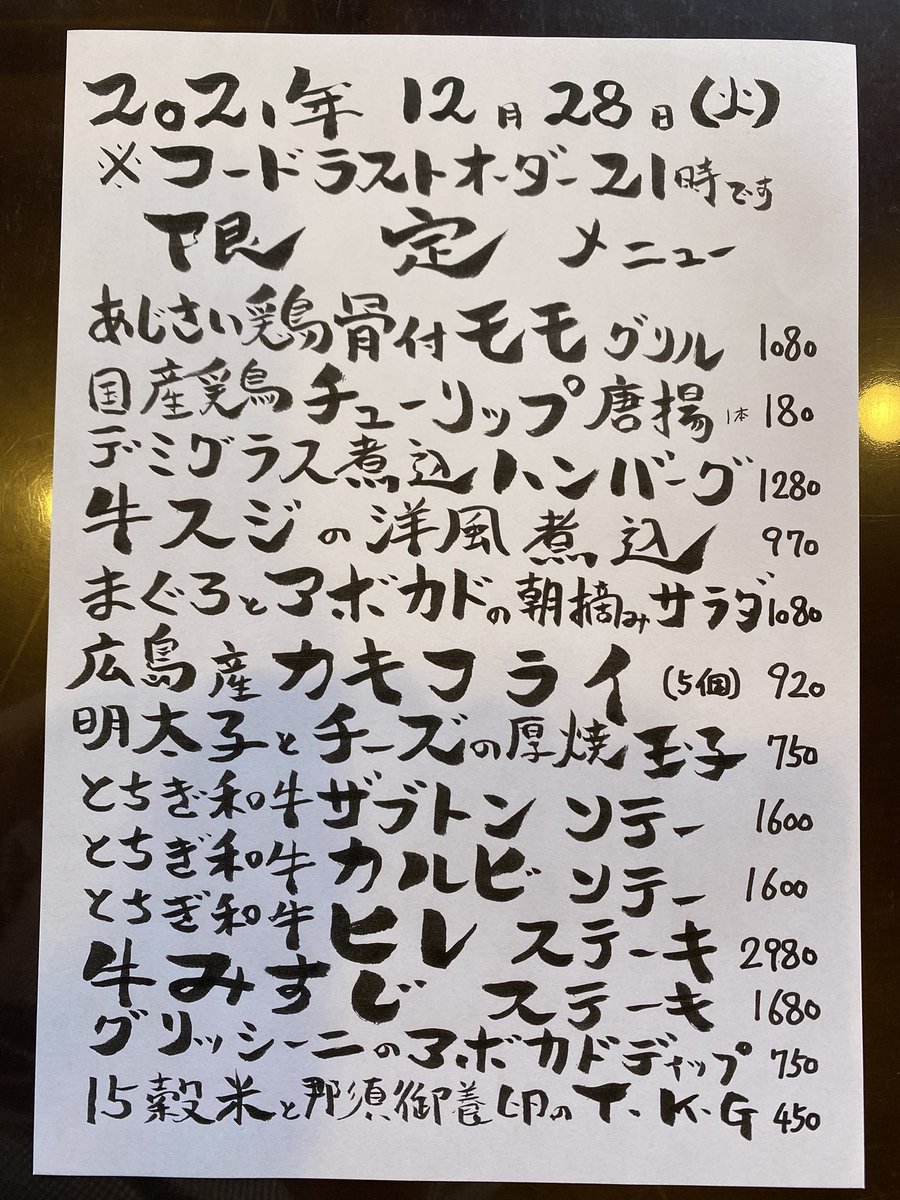 2021年 12月 28日(火)
※フードラストオーダー21時です
限定メニュー
あじさい鶏骨付モモグリル 1080
国産鶏チューリップ唐揚 1本 180
デミグラス煮込ハンバーグ 1280
牛スジの洋風煮込 970
まぐろとアボカドの朝摘みサラダ 1080
広島産カキフライ(5個) 920
明太子とチーズの厚焼玉子 750
とちぎ和牛ザブトンソテー 1600
とちぎ和牛カルビソテー 1600
とちぎ和牛ヒレステーキ 2980
牛みすじステーキ 1680
グリッシーニのアボカドディップ 750
15穀米と那須御養卵のT.K.G 450